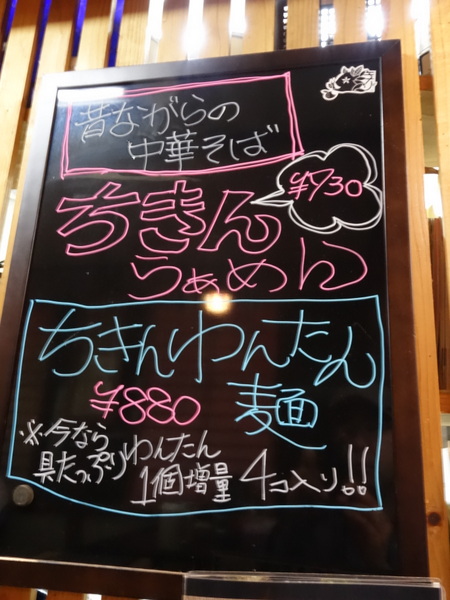 昔ながらの
中華そば
ちきん
らぁめん
¥730
ちきんわんたん
麺
¥880
※今なら
具たっぷりわんたん
1個増量 4コ入り!!